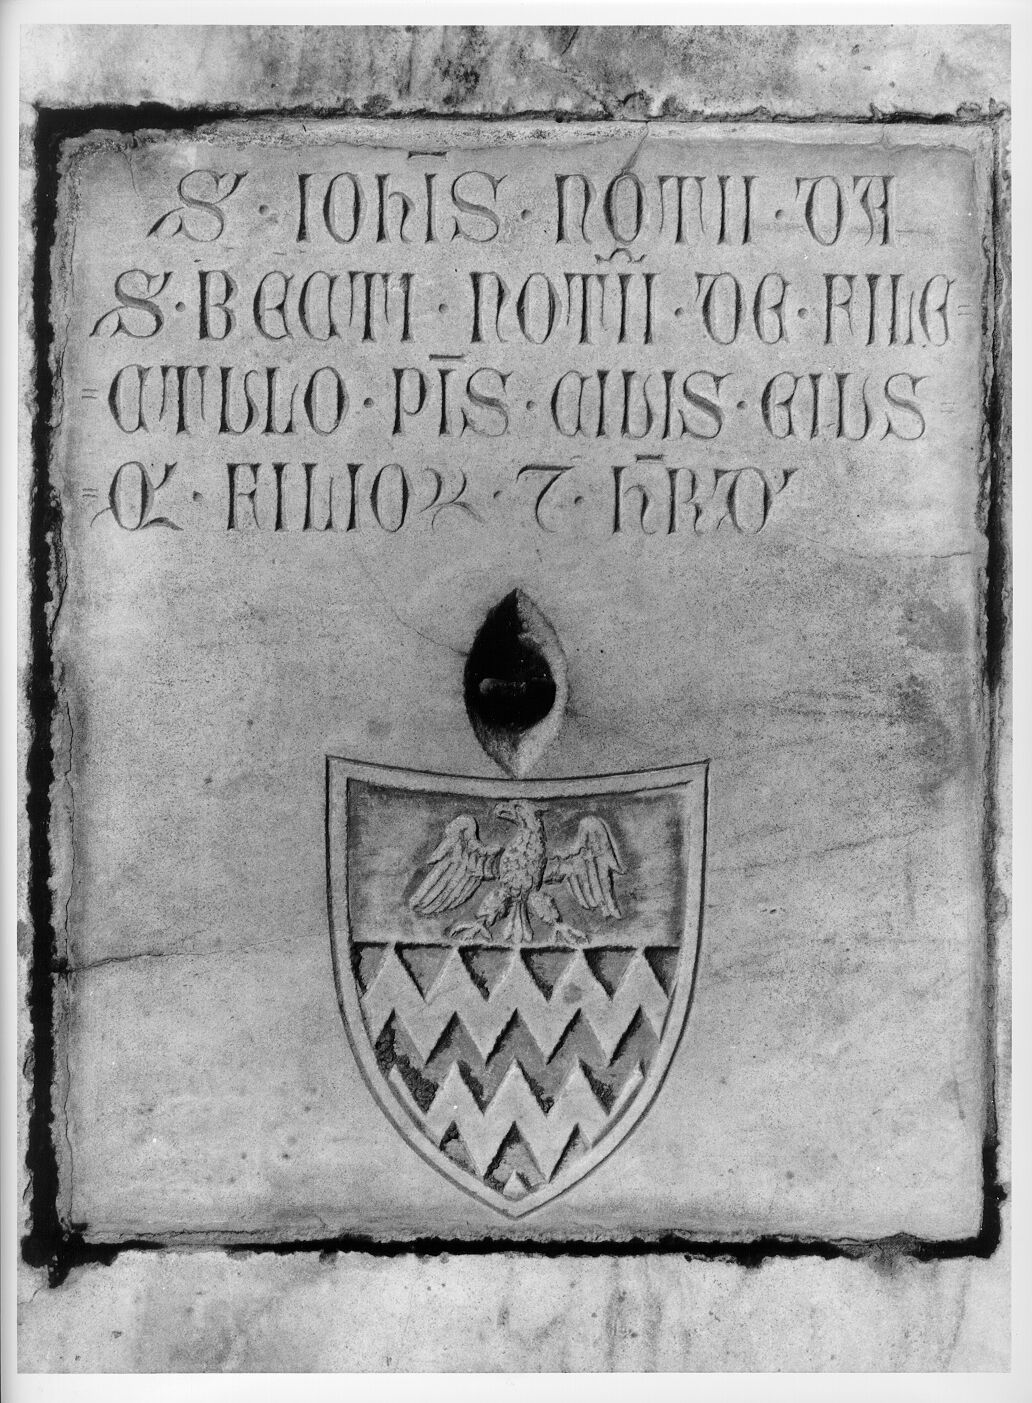 S · IOHĪS · NOTII · DA
S · BEATI · NOTII · DE · FILE
= CTULLO · PĪS · CIUIS · EIUS
= Q · FILIOꝜ · ⁊ · H̄RD